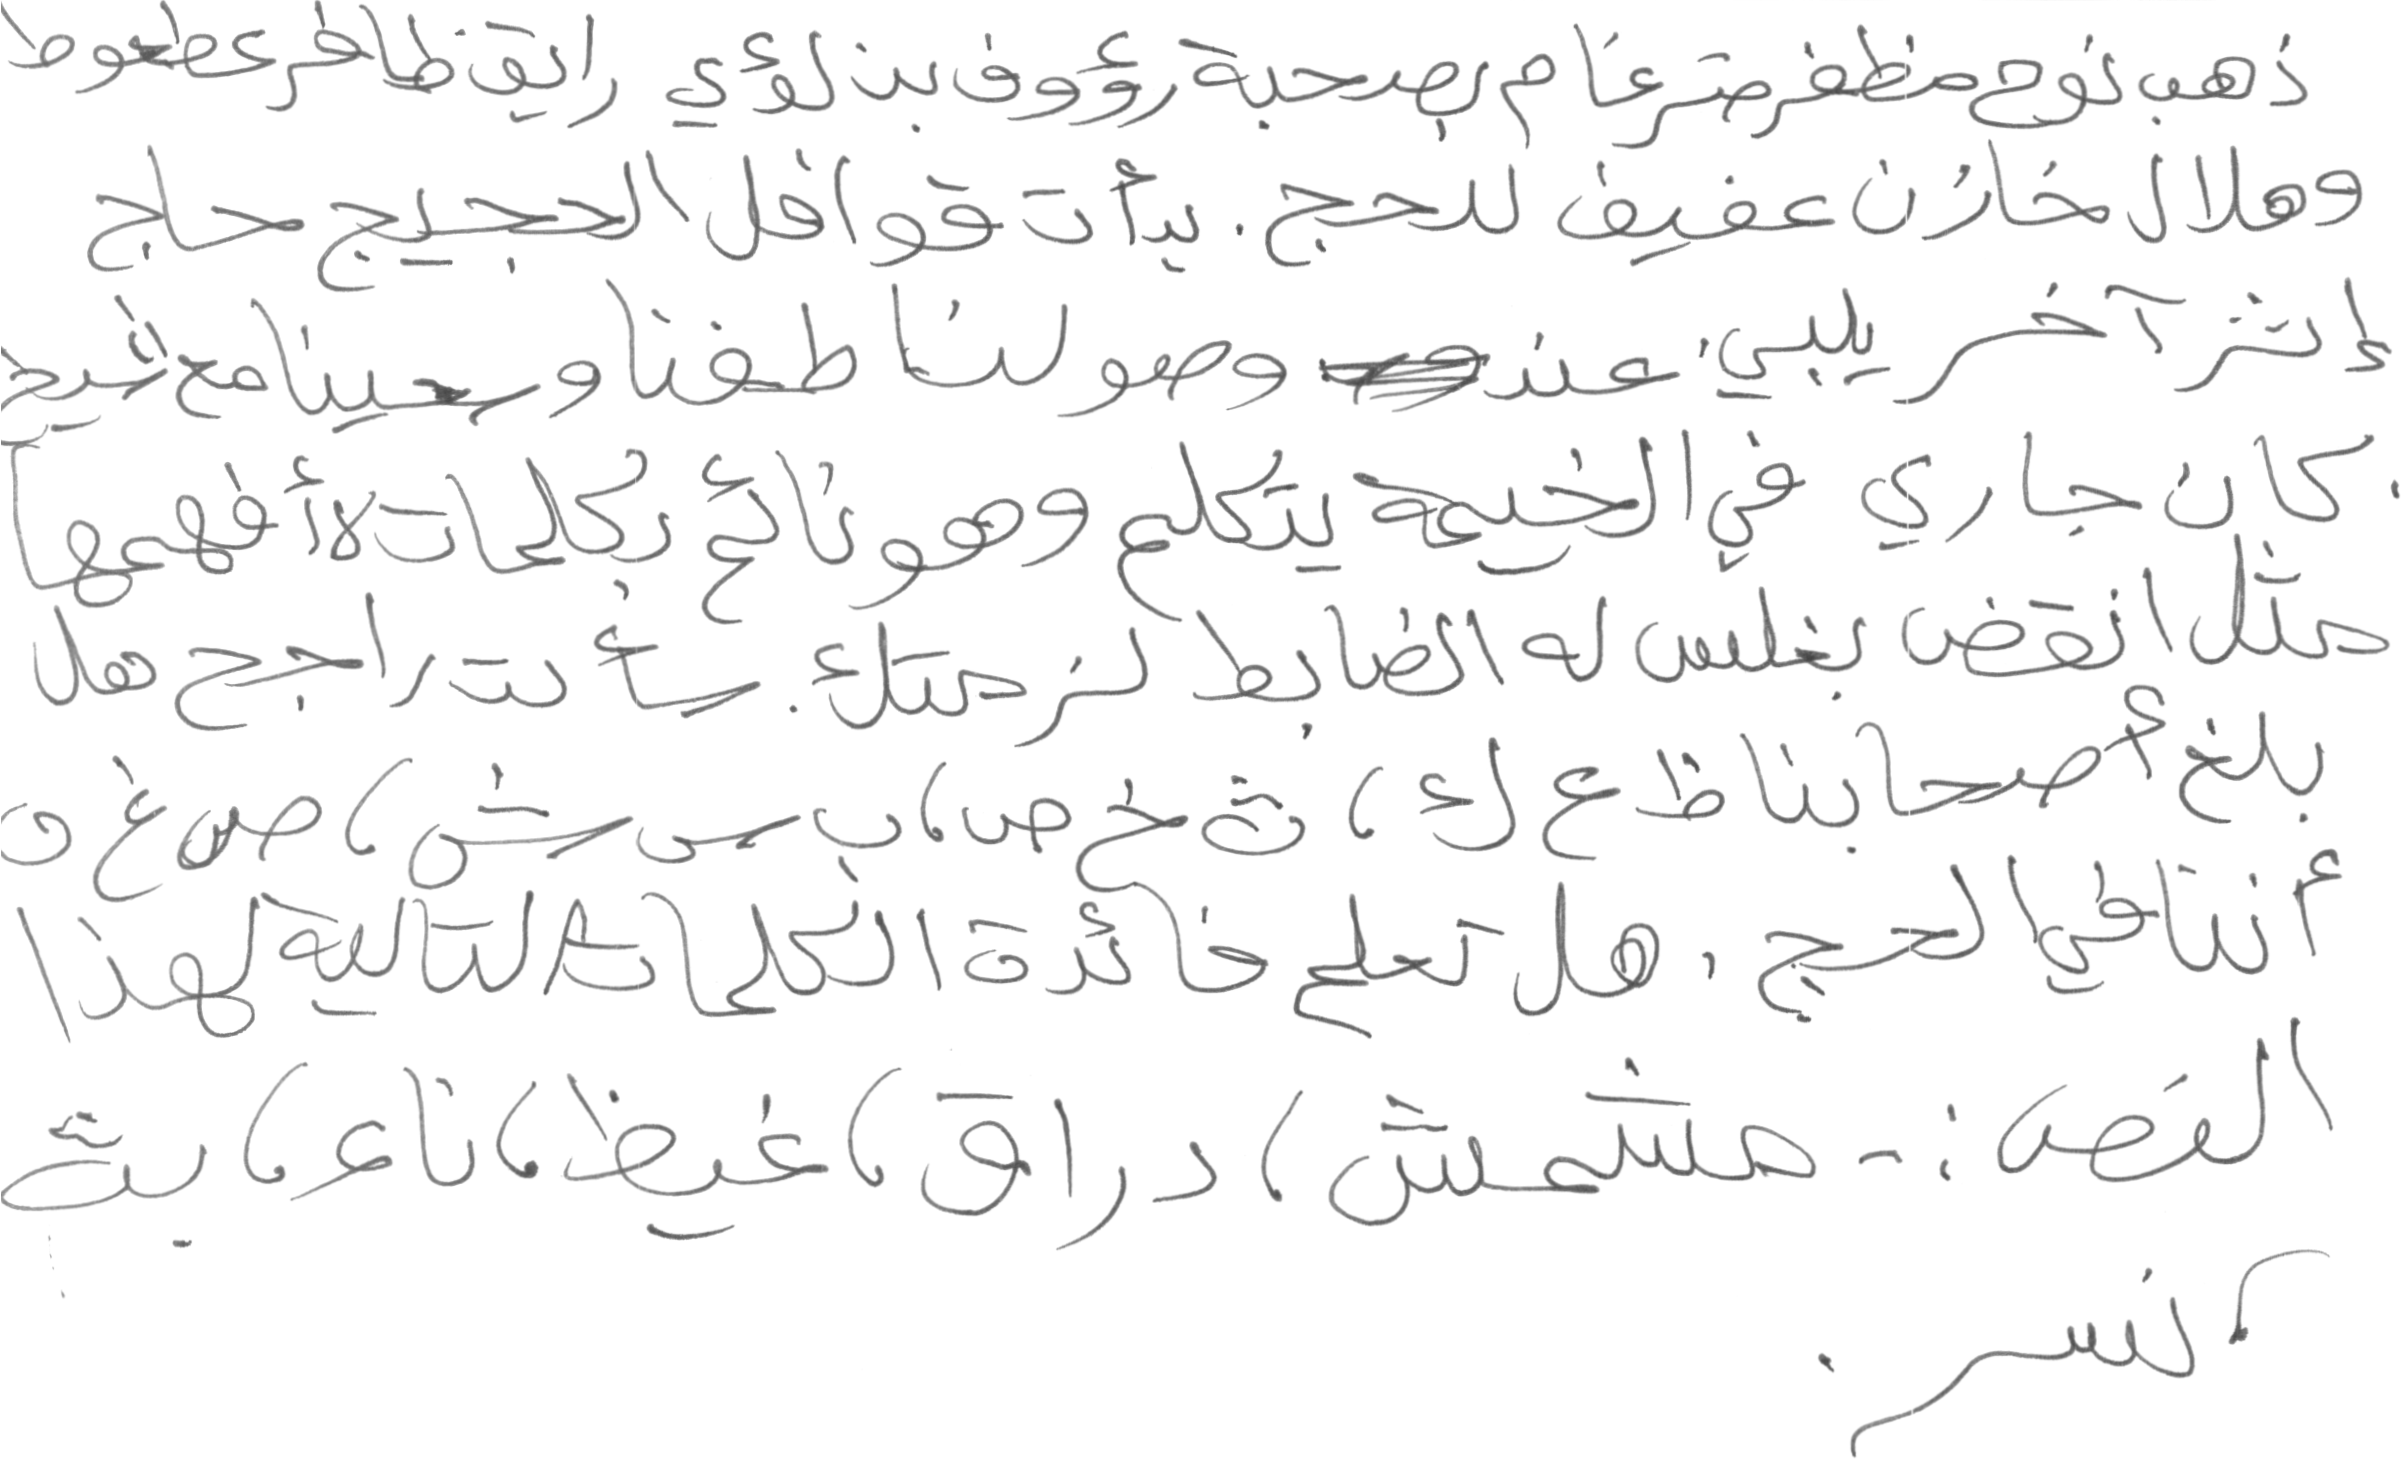 ذهب نوح مظفر ضرغام بصحبة رؤوف بن لؤي رايق ظافر عطعوط
وهلال خازن عفيف للحج . بدأت قوافل الحجيج حاج
إثر آخر يلبي . عند وصولنا طفنا وسعينا مع الشيخ
. كان جاري في الخيمة يتكلم وهو نائم بكلمات لا أفهمها
مثل انقض بغلس له الضابط لزمتك . سألت راجح هل
بلغ أصحابنا ظ ع ك ، ث خ ص ، ب س ش ، ص غ و
أننا في الحج . هل تعلم فائدة الكلمات التالية لهذا
النص :- مشمش ، دراق ، غيظ ، ناء ، يث
كنسر .